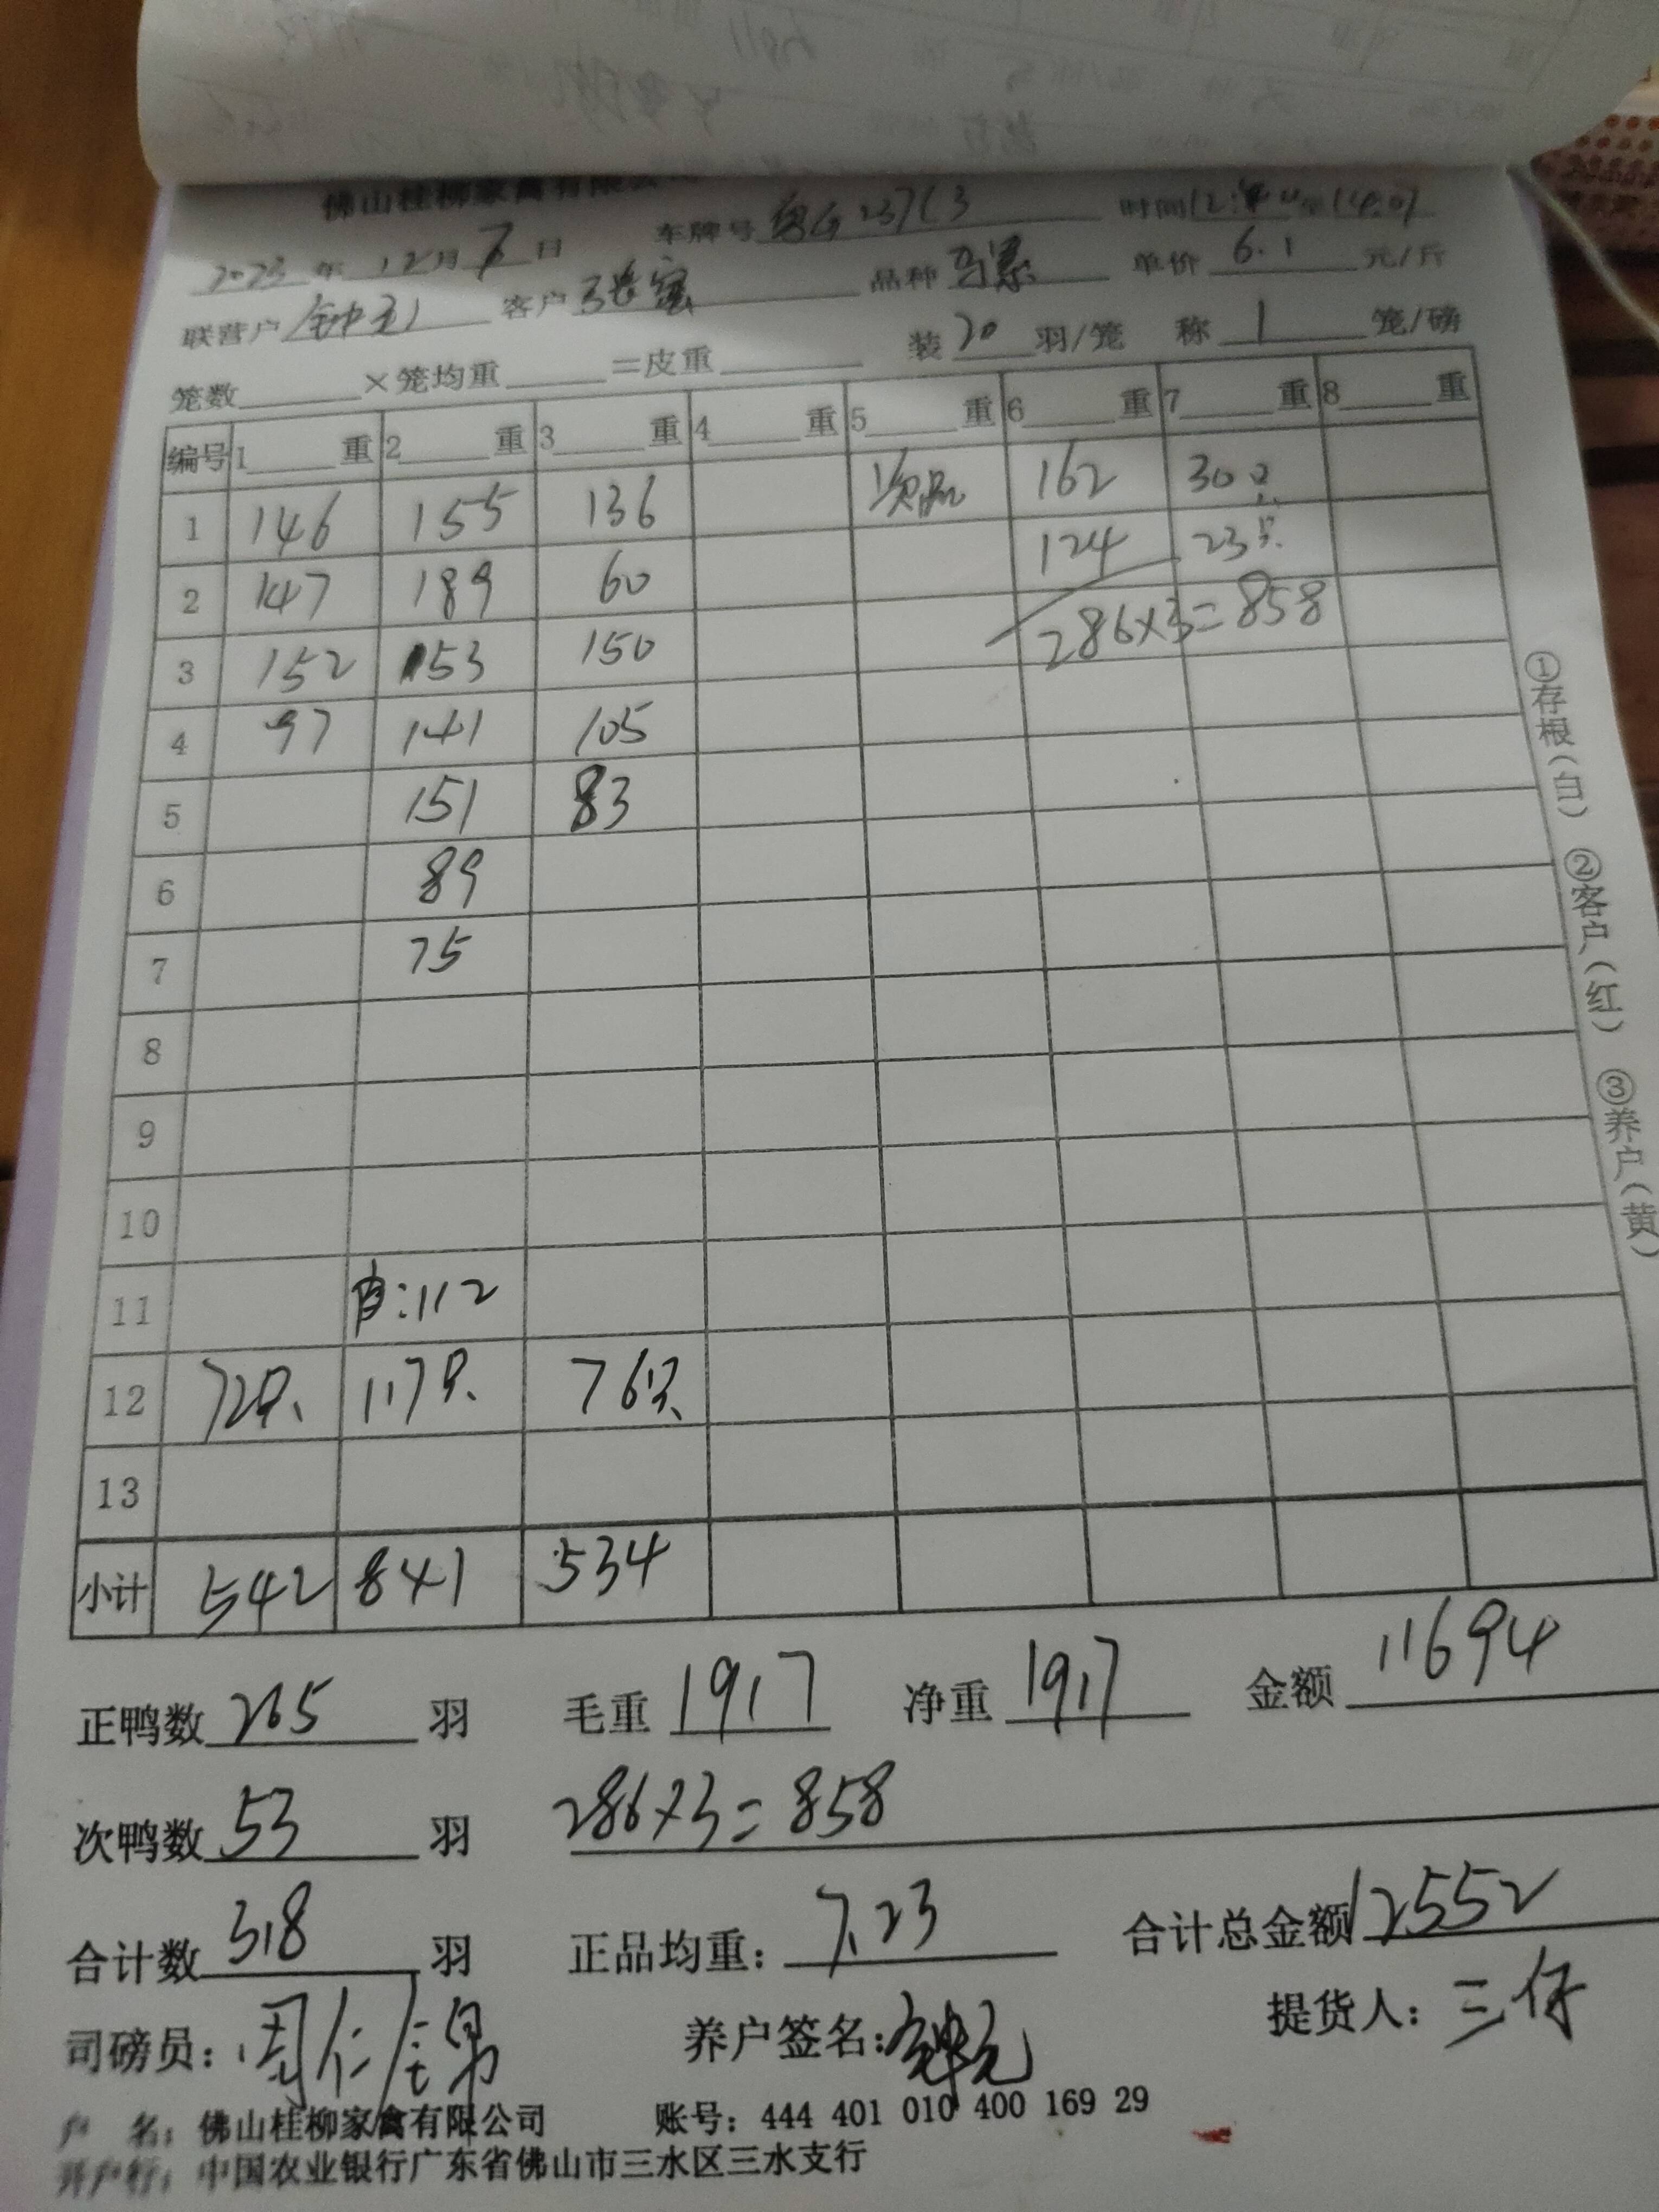 佛山桂柳家禽有限公司
2023 年 12 月 7 日 车牌号 时间
联营户 客户 品种 单价 6.1 元/斤
笼数 ×笼均重 =皮重 装 20 羽/笼 称 1 笼/磅
编号 1 重 2 重 3 重 4 重 5 重 6 重 7 重 8 重
1 146 155 136 次品 162 30只
2 147 189 60 124 23只
3 152 153 150 286×3=858
4 97 141 105
5 151 83
6 89
7 75
8
9
10
11 :112
12 72只、 117只、 76只、
13
小计 542 841 534
正鸭数 265 羽 毛重 1917 净重 1917 金额 11694
次鸭数 53 羽 286×3=858
合计数 318 羽 正品均重: 7.23 合计总金额 12552
司磅员: 养户签名: 提货人: 三仔
户 名: 佛山桂柳家禽有限公司 账号: 444 401 010 400 169 29
开户行: 中国农业银行广东省佛山市三水区三水支行
①存根(白) ②客户(红) ③养户(黄)